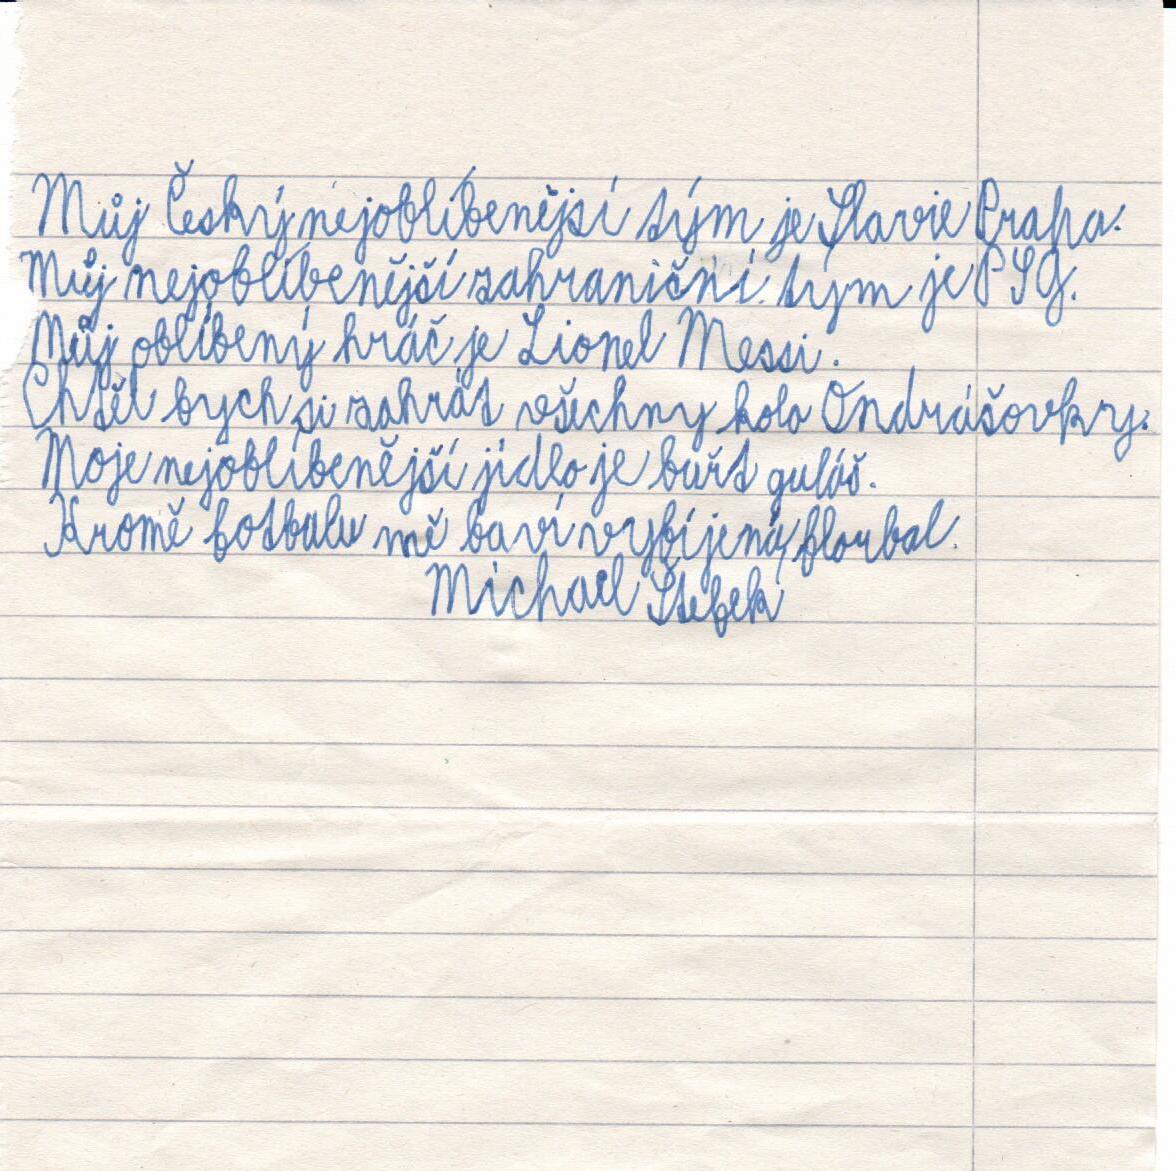 Můj Český nejoblíbenější tým je Slavie Praha.
Můj nejoblíbenější zahraniční tým je PSG.
Můj oblíbený hráč je Lionel Messi.
Chtěl bych si zahrát všechny kola Ondrášovky.
Moje nejoblíbenější jídlo je buřt guláš.
Kromě fotbalu mě baví vybíjená, florbal.
Michael Štefek